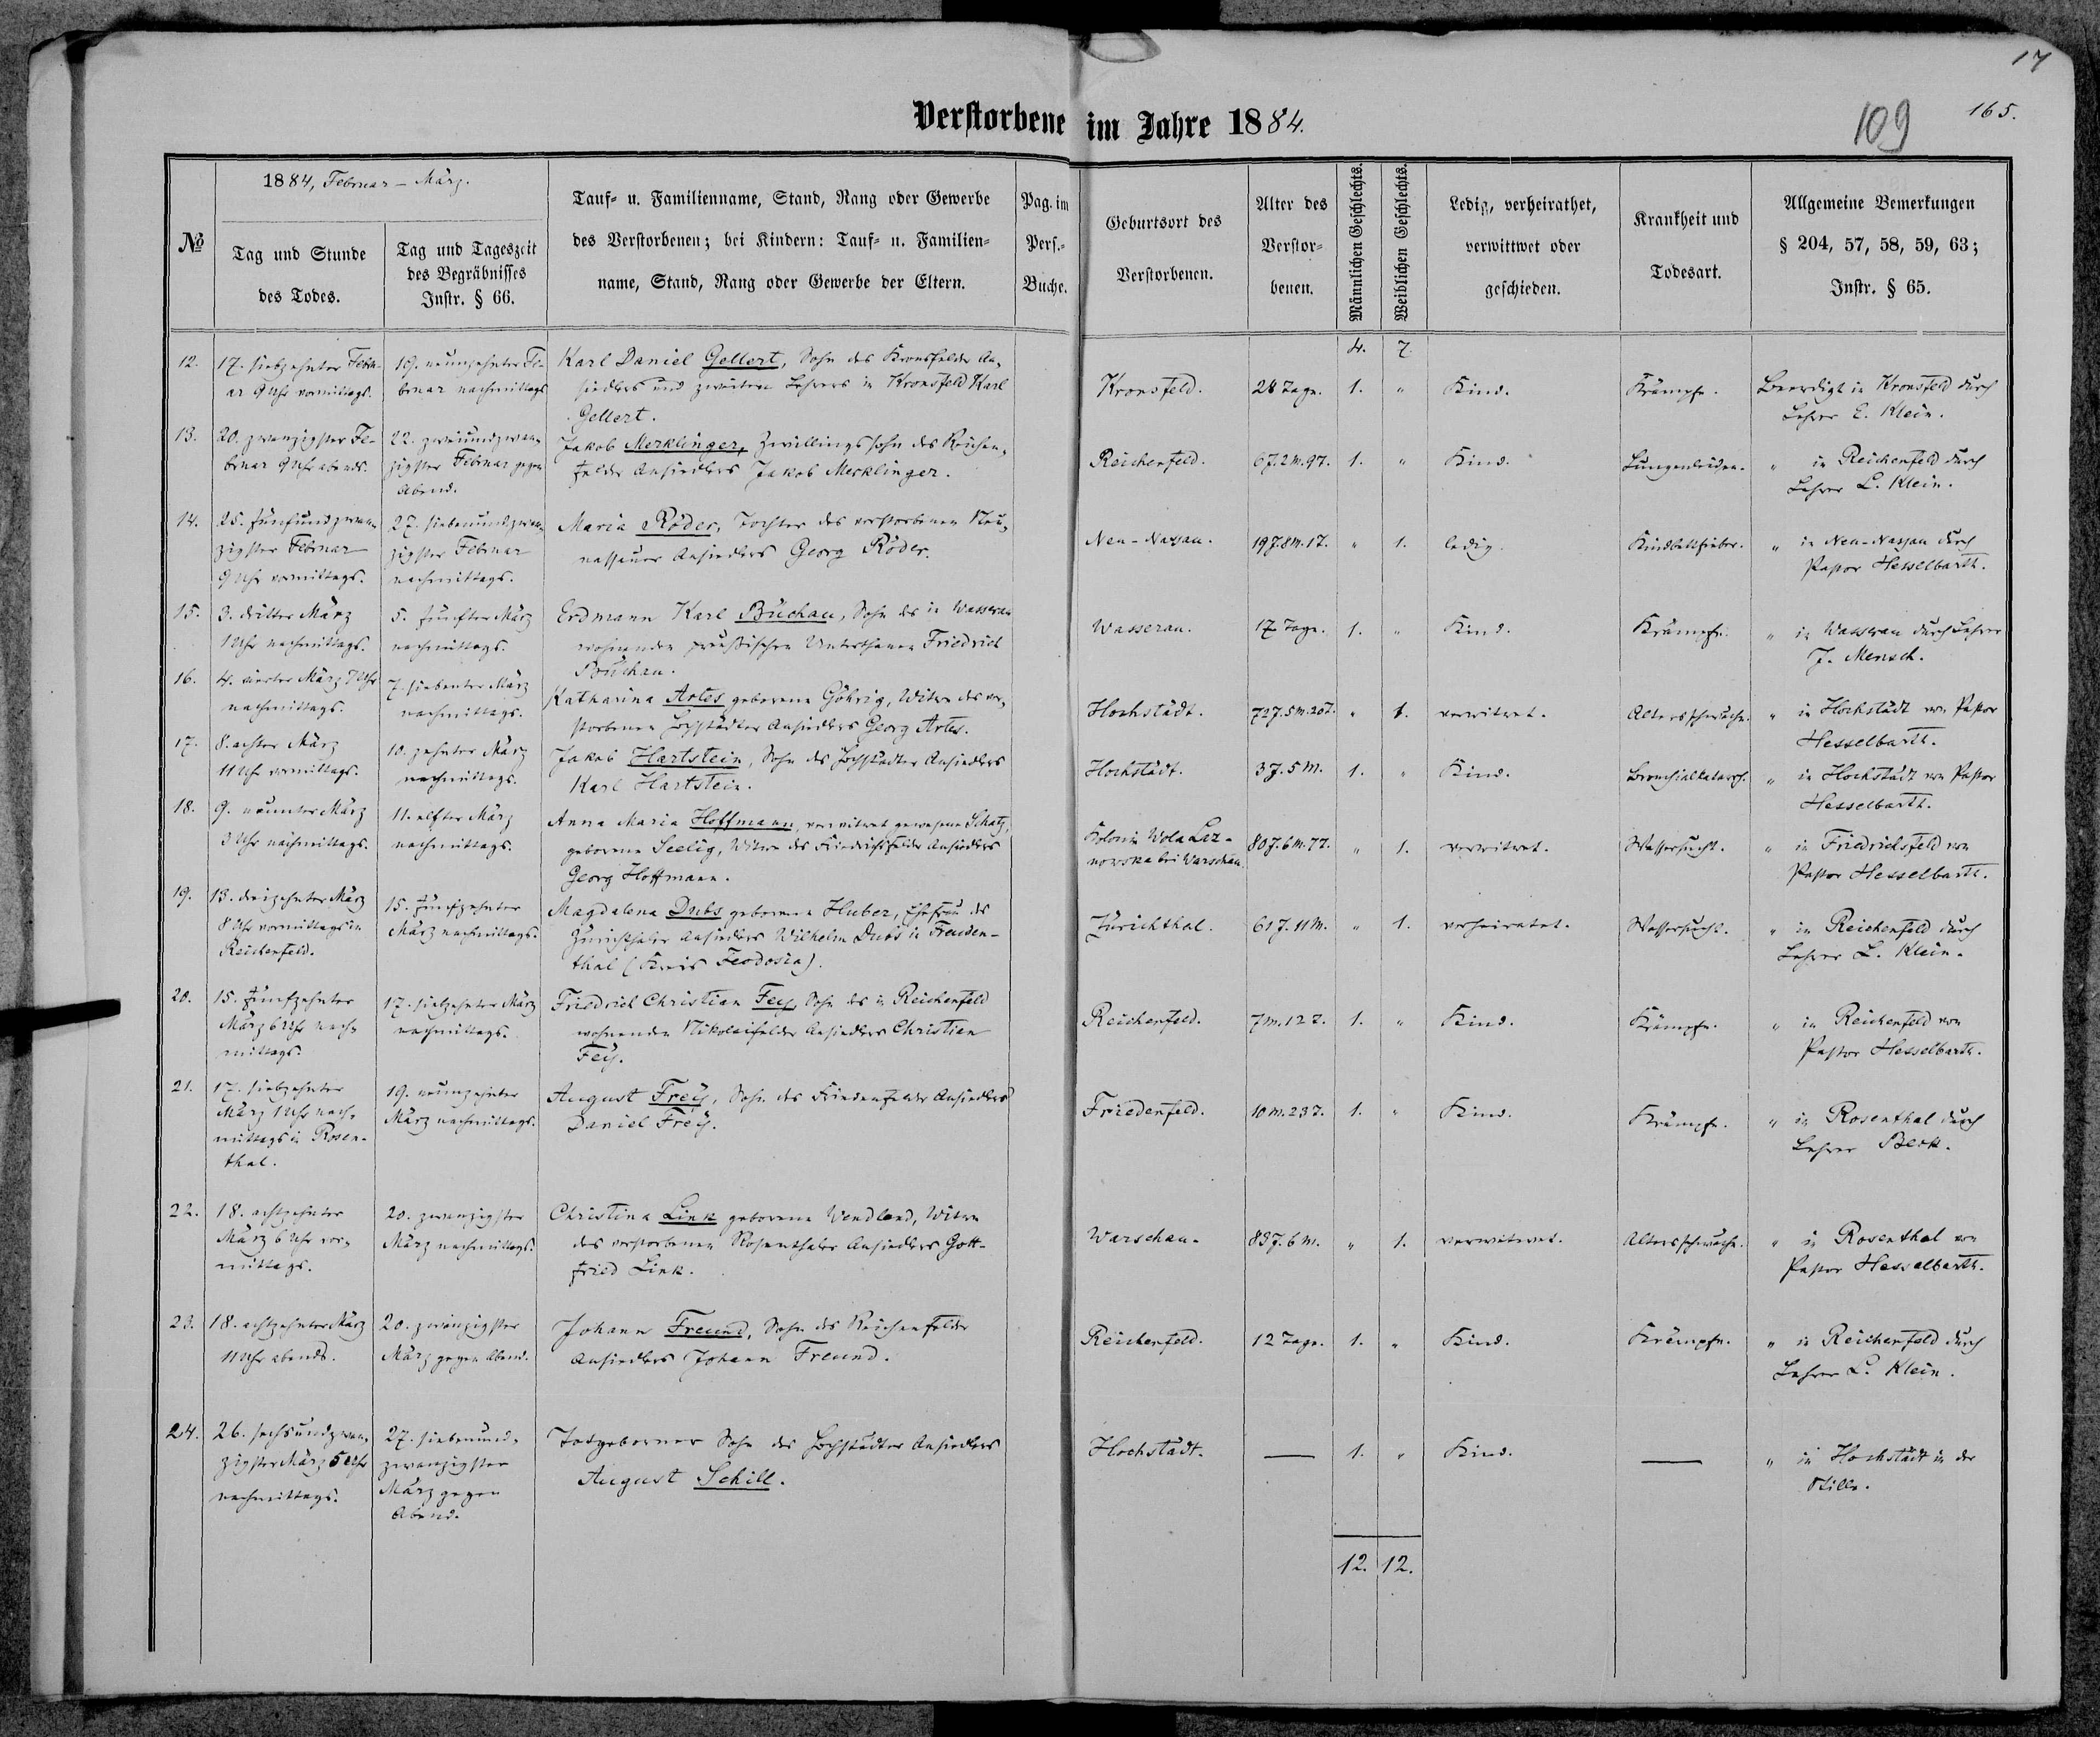 17
165.
109
Verstorbene im Jahre 1884.
№
1884, Februar - März.
Tag und Stunde
des Todes.
Tag und Tageszeit
des Begräbnisses
Instr. § 66.
Tauf- u. Familienname, Stand, Rang oder Gewerbe
des Verstorbenen; bei Kindern: Tauf- u. Familien-
name, Stand, Rang oder Gewerbe der Eltern.
Pag. im
Pers.-
Buche.
Geburtsort des
Verstorbenen.
Alter des
Verstor-
benen.
Männlichen Geschlechts.
Weiblichen Geschlechts.
Ledig, verheirathet,
verwittwet oder
geschieden.
Krankheit und
Todesart.
Allgemeine Bemerkungen
§ 204, 57, 58, 59, 63;
Instr. § 65.
4. 7.
12.
17. siebzehnter Febru-
ar 9 Uhr vormittags.
19. neunzehnter Fe-
bruar nachmittags
Karl Daniel Gellert, Sohn des Kronsfelder An-
siedlers und zweiten Lehrers in Kronsfeld Karl
Gellert.
Kronsfeld.
28 Tage.
1.
"
Kind.
Krämpfe.
Beerdigt in Kronsfeld durch
Lehrer E. Klein.
13.
20. zwanzigster Fe-
bruar 9 Uhr abends.
22. zweiundzwan-
zigster Februar gegen
Abend.
Jakob Merklinger, Zwillingssohn des Reichen-
felder Ansiedlers Jakob Merklinger.
Reichenfeld.
6J. 2M. 9T.
1.
"
Kind.
Lungenleiden.
" in Reichenfeld durch
Lehrer L. Klein.
14.
25. fünfundzwan-
zigster Februar
9 Uhr vormittags.
27. siebenundzwan-
zigster Februar
nachmittags.
Maria Röder, Tochter des verstorbenen Neu-
nassauer Ansiedlers Georg Röder.
Neu-Nassau.
19J. 8M. 1T.
"
1.
ledig.
Kindbettfieber.
" in Neu-Nassau durch
Pastor Hesselbarth.
15.
3. dritter März
1 Uhr nachmittags.
5. fünfter März
nachmittags.
Erdmann Karl Büchau, Sohn des in Wasserau
wohnenden preußischen Unterthanen Friedrich
Büchau.
Wasserau.
17 Tage.
1.
"
Kind.
Krämpfe.
" in Wasserau durch Lehrer
J. Mensch.
16.
4. vierter März 7 Uhr
nachmittags.
7. siebenter März
nachmittags.
Katharina Artes geborene Göhrig, Witwe des ver-
storbenen Hochstädter Ansiedlers Georg Artes.
Hochstädt.
72J. 5M. 20T.
"
1.
verwitwet.
Altersschwäche.
" in Hochstädt von Pastor
Hesselbarth.
17.
8. achter März
11 Uhr vormittags.
10. zehnter März
nachmittags.
Jakob Hartstein, Sohn des Hochstädter Ansiedlers
Karl Hartstein.
Hochstädt.
3J. 5M.
1.
"
Kind.
Bronchialkatarrh.
" in Hochstädt von Pastor
Hesselbarth.
18.
9. neunter März
3 Uhr nachmittags.
11. elfter März
nachmittags.
Anna Maria Hoffmann, verwitwet gewesene Schatz,
geborene Seelig, Witwe des Friedrichsfelder Ansiedlers
Georg Hoffmann.
Kolonie Wola Laz-
nowska bei Warschau.
80J. 6M. 7T.
"
1.
verwitwet.
Wassersucht.
" in Friedrichsfeld von
Pastor Hesselbarth.
19.
13. dreizehnter März
8 Uhr vormittags in
Reichenfeld.
15. fünfzehnter
März nachmittags.
Magdalena Dubs geborene Huber, Ehefrau des
Zürichthaler Ansiedlers Wilhelm Dubs in Freuden-
thal (Kreis Feodosia).
Zürichthal.
61J. 11M.
"
1.
verheiratet.
Wassersucht.
" in Reichenfeld durch
Lehrer L. Klein.
20.
15. fünfzehnter
März 6 Uhr nach-
mittags.
17. siebzehnter März
nachmittags.
Friedrich Christian Fey, Sohn des in Reichenfeld
wohnenden Nikolaifelder Ansiedlers Christian
Fey.
Reichenfeld.
7M. 12T.
1.
"
Kind.
Krämpfe.
" in Reichenfeld von
Pastor Hesselbarth.
21.
17. siebzehnter
März 1 Uhr nach-
mittags in Rosen-
thal.
19. neunzehnter
März nachmittags.
August Frey, Sohn des Friedenfelder Ansiedlers
Daniel Frey.
Friedenfeld.
10M. 23T.
1.
"
Kind.
Krämpfe.
" in Rosenthal durch
Lehrer Beck.
22.
18. achtzehnter
März 6 Uhr vor-
mittags.
20. zwanzigster
März nachmittags.
Christina Link geborene Wendland, Witwe
des verstorbenen Rosenthaler Ansiedlers Gott-
fried Link.
Warschau.
83J. 6M.
"
1.
verwitwet.
Altersschwäche.
" in Rosenthal von
Pastor Hesselbarth.
23.
18. achtzehnter März
11 Uhr abends.
20. zwanzigster
März gegen Abend.
Johann Freund, Sohn des Reichenfelder
Ansiedlers Johann Freund.
Reichenfeld.
12 Tage.
1.
"
Kind.
Krämpfe.
" in Reichenfeld durch
Lehrer L. Klein.
24.
26. sechsundzwan-
zigster März 5 Uhr
nachmittags.
27. siebenund-
zwanzigster
März gegen
Abend.
Todgeborner Sohn des Hochstädter Ansiedlers
August Schill.
Hochstädt.
—
1.
"
Kind.
—
" in Hochstädt in der
Stille.
12. 12.